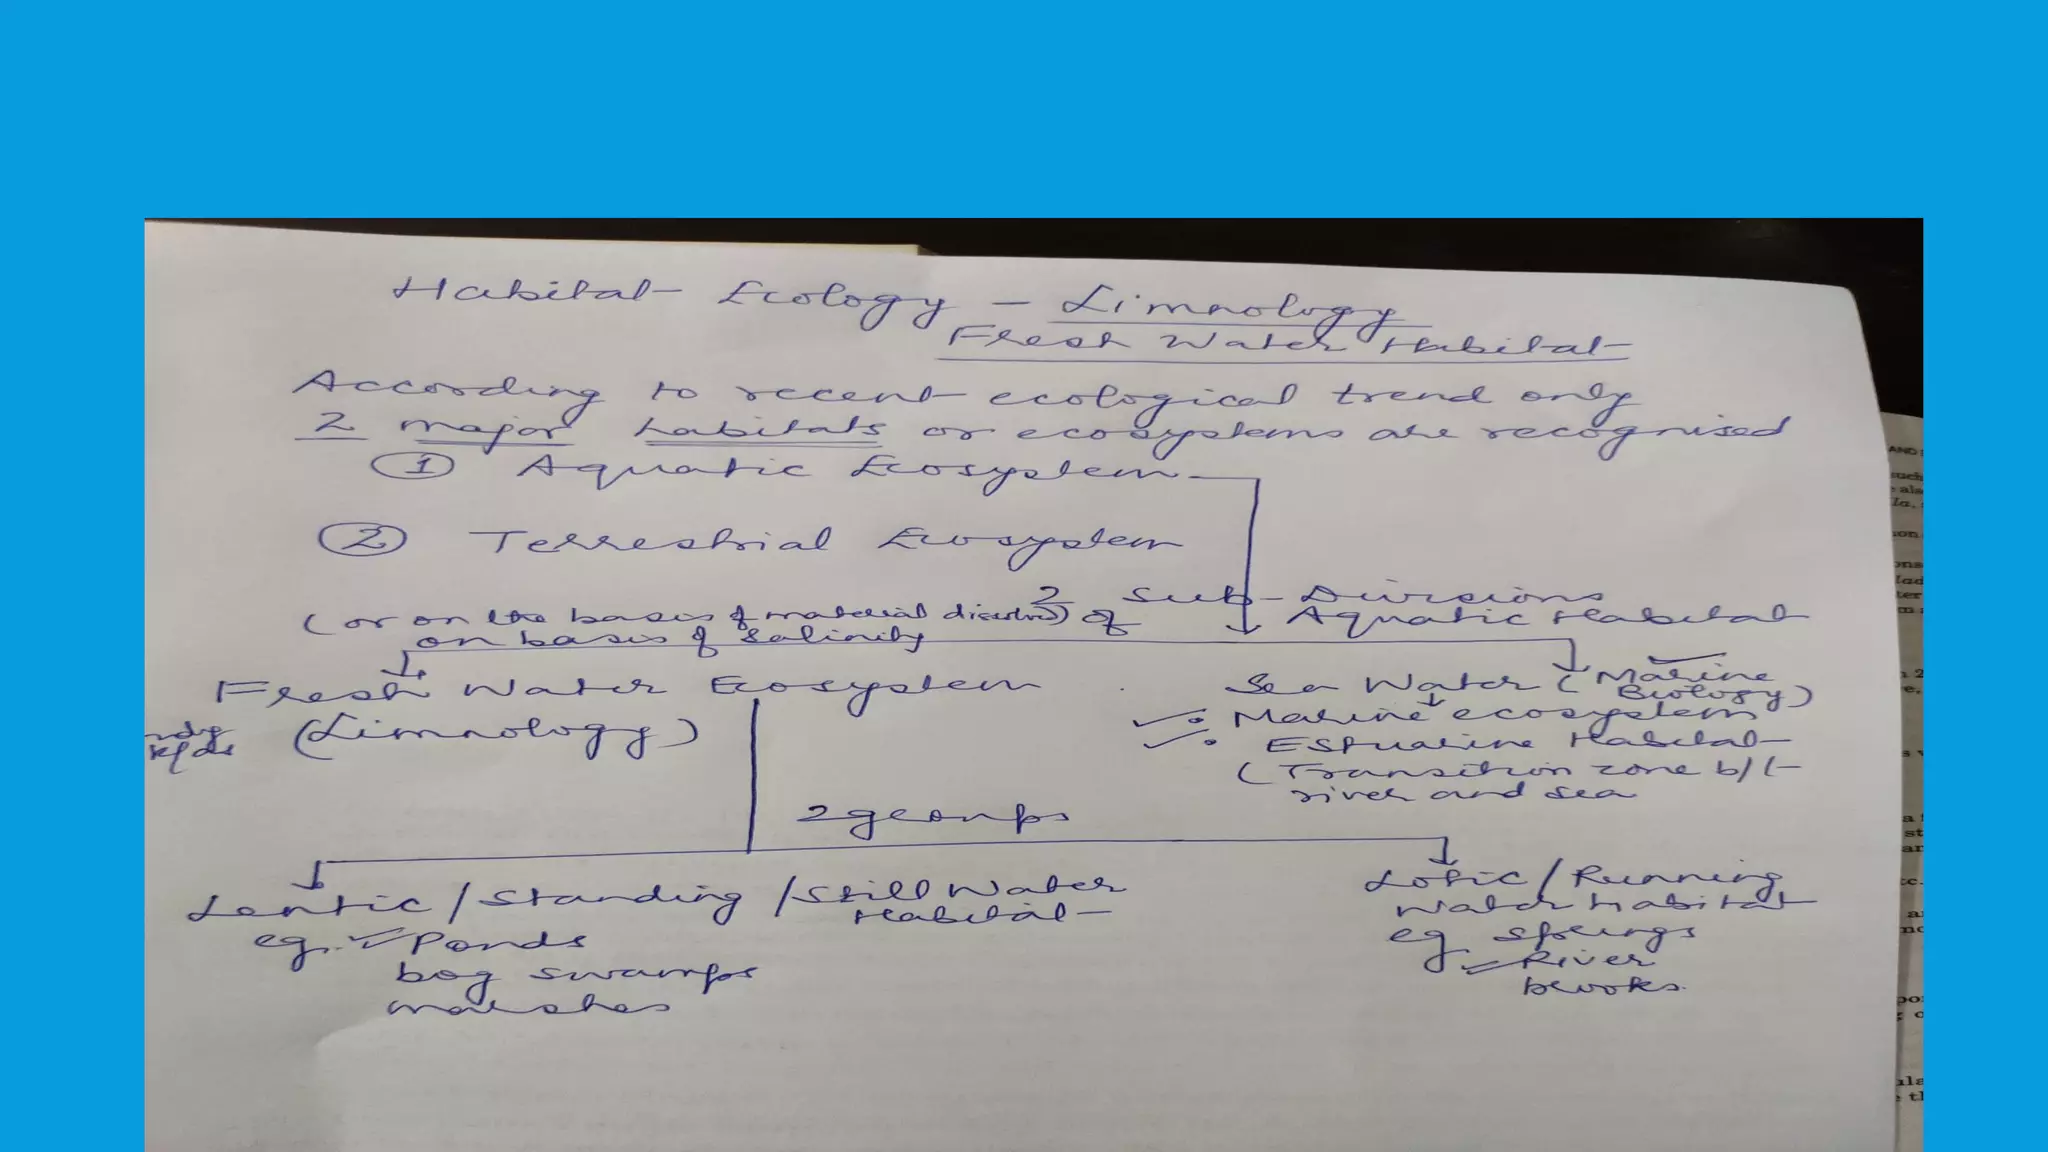 Habitat Ecology - Limnology
Fresh Water Habitat
According to recent ecological trend only
2 major habitats or ecosystems are recognised
1 Aquatic Ecosystem
2 Terrestrial Ecosystem
2 Sub-Divisions of Aquatic Habitat
(or on the basis of material dissolved)
on basis of salinity
Fresh Water Ecosystem
(Limnology)
Sea Water (Marine Biology)
Marine ecosystem
Estuarine Habitat
(Transition zone b/t
river and sea
2 groups
Lentic / Standing / Still Water
Habitat
eg. Ponds
bog swamps
marshes
Lotic / Running
Water Habitat
eg. Springs
River
brooks.